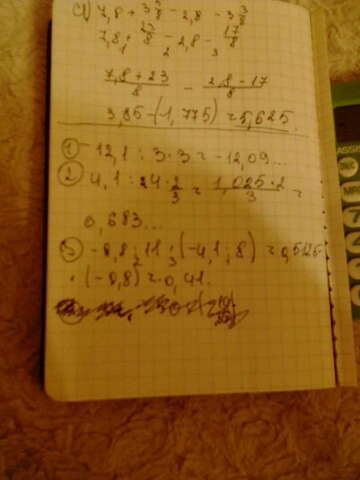 с) 7,8 + 3 3/8 - 2,8 - 3 3/8
7,8 + 23/8 - 2,8 - 17/8
1 2 3
7,8+23/8 - 2,8-17/8
3,85-(-1,775)=5,625.
① -12,1 : 3 · 3 = -12,09...
② 4,1 : 24 · 2/3 = 1,025·2/3 =
0,683...
③ -8,8 : 11 · (-4,1 : 8) = 0,5125
· (-0,8) = 0,41.